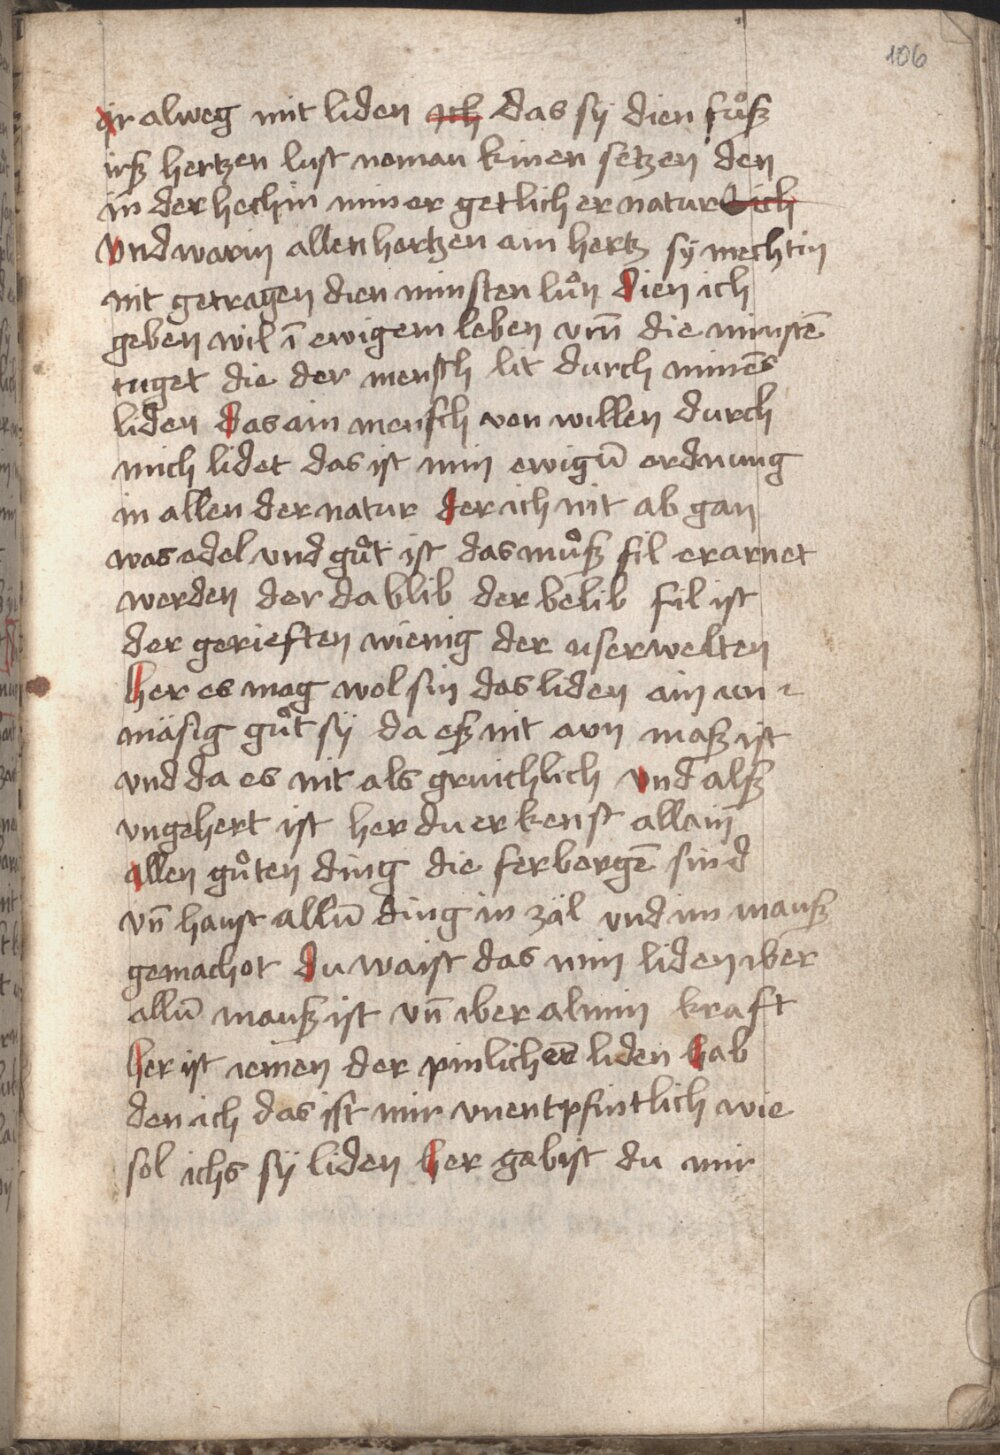 106
ir alweg mit liden ich das sÿ dien fuͦsz
irsz hertzen lust noman kinen setzen den
in der hechin miner getlicher natur lich
vnd warin allen hertzen ain hertz sÿ mechtin
nit getragen dien minsten luͦn dien ich
geben wil ī ewigem leben vm̄ die minstē
tuget die der mensch lit durch minēs
liden das ain mensch von willen durch
mich lidet das ist min ewigū ordnung
in allen der natur der ich nit ab gan
was edel vnd guͦt ist das muͦsz fil erarnet
werden der da blib der belib fil ist
der gerieften wienig der userwelten
her es mag wol sin das liden ain un
mäsig guͦt sÿ da esz nit aun masz ist
vnd da es nit als gruichlich vnd alsz
vngehert ist her du erkenst allain
allen guͦten ding die ferborgē sind
vn̄ haust allū ding in zäl vnd im mausz
gemachot du waist das min liden iber
allū mausz ist vn̄ iber al min kraft
her ist iemen der pinlicherē liden hab
den ich das ist mir vnentpfintlich wie
sol ichs sÿ liden her gebist du mir